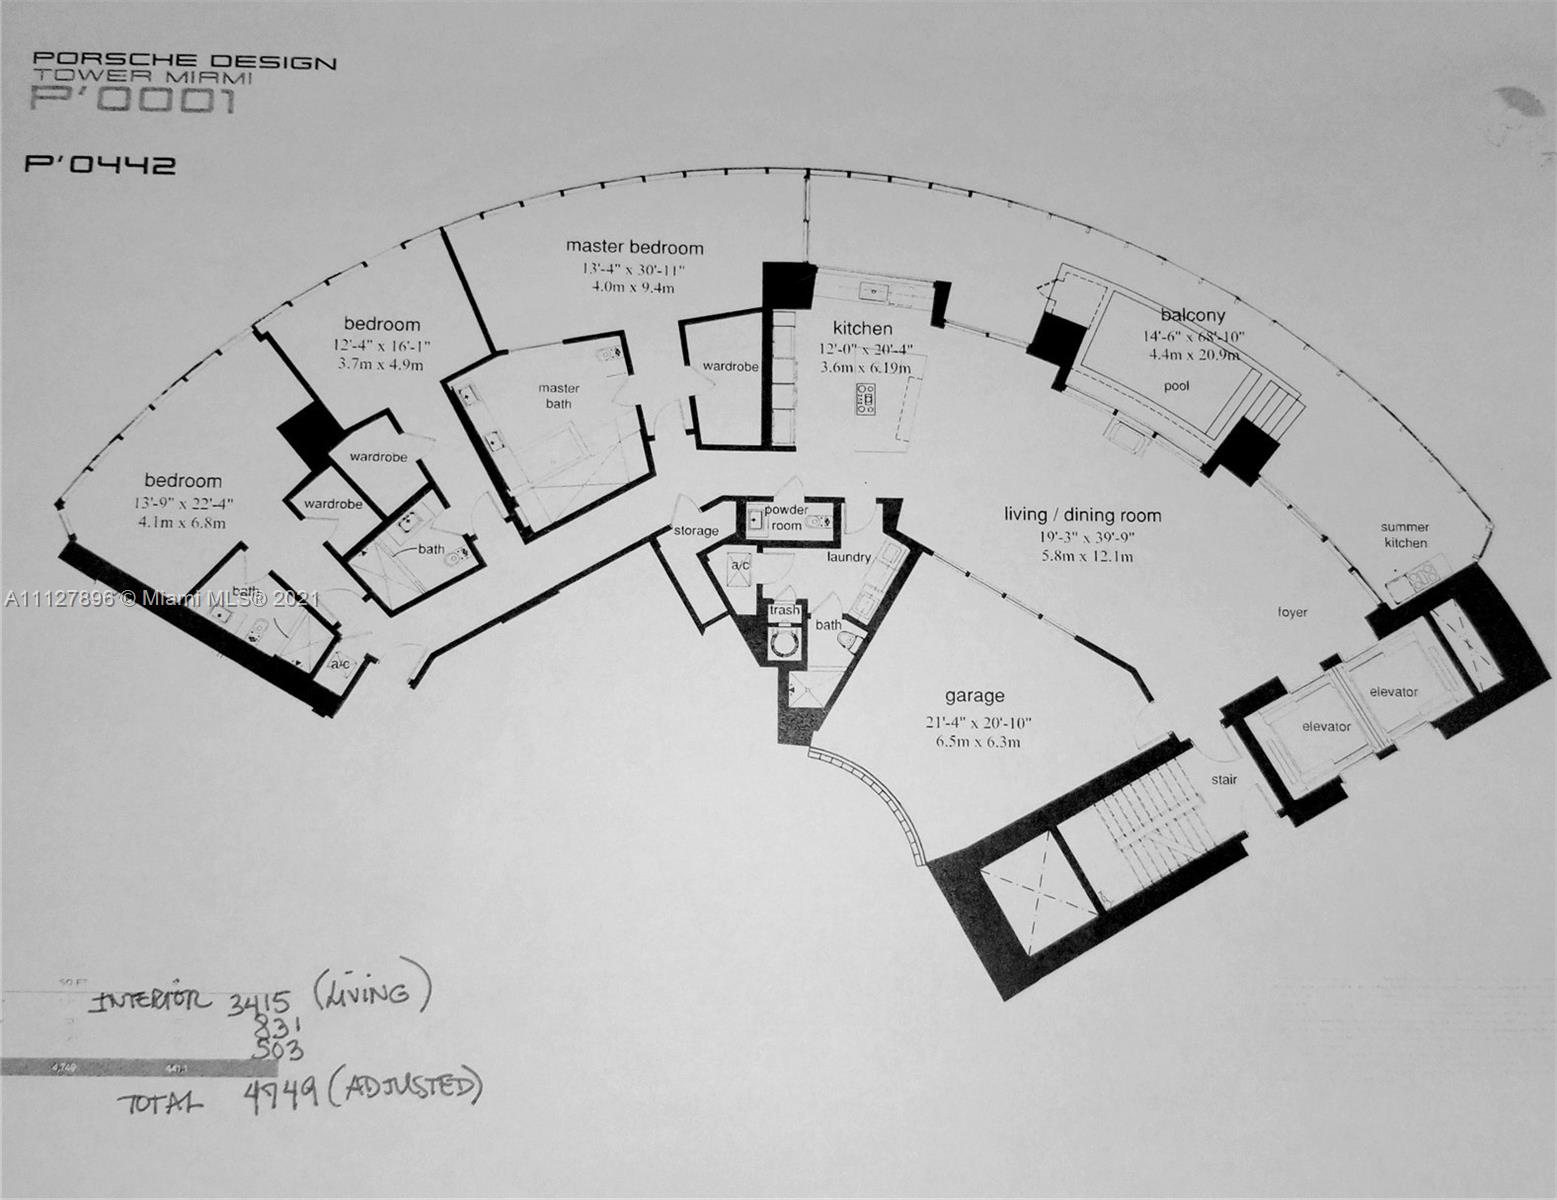 PORSCHE DESIGN
TOWER MIAMI
P'0001
P'0442
master bedroom
13'-4" x 30'-11"
4.0m x 9.4m
bedroom
12'-4" x 16'-1"
3.7m x 4.9m
master
bath
wardrobe
kitchen
12'-0" x 20'-4"
3.6m x 6.19m
balcony
14'-6" x 68'-10"
4.4m x 20.9m
pool
bedroom
13'-9" x 22'-4"
4.1m x 6.8m
wardrobe
wardrobe
bath
storage
powder
room
living / dining room
19'-3" x 39'-9"
5.8m x 12.1m
summer
kitchen
a/c
laundry
bath
A11127896 © Miami MLS® 2021
trash
bath
foyer
a/c
garage
21'-4" x 20'-10"
6.5m x 6.3m
elevator
elevator
stair
SQ FT
INTERIOR 3415 (LIVING)
831
503
4,749
TOTAL 4749 (ADJUSTED)